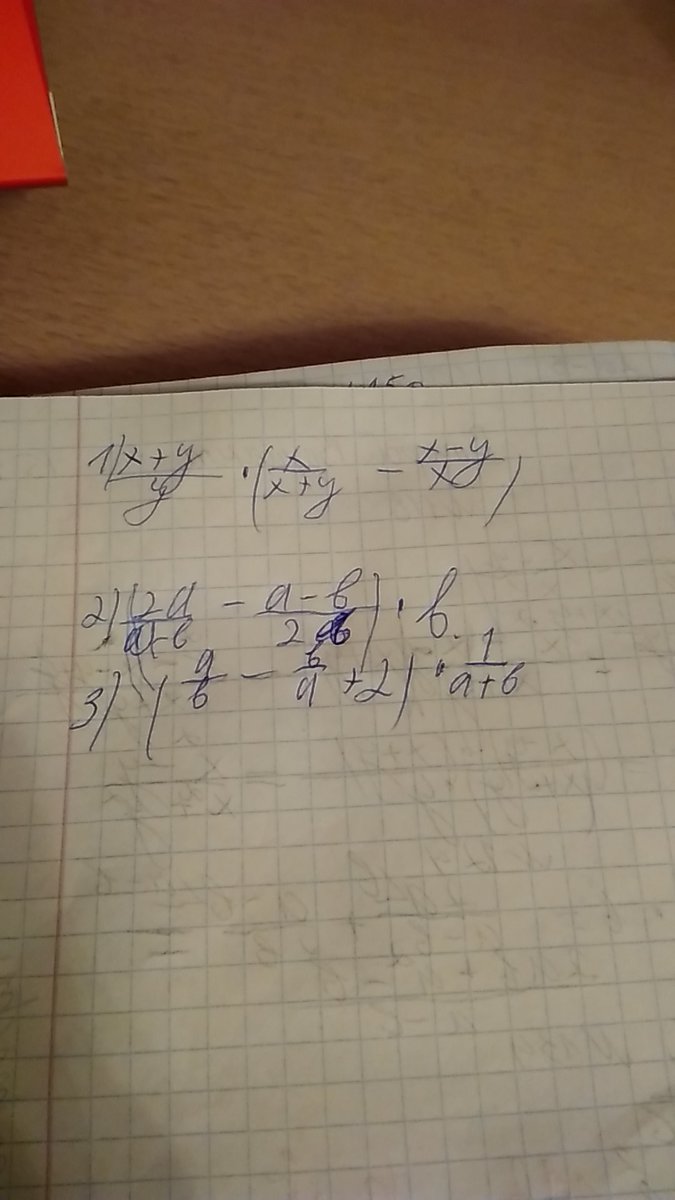 1) (x+y)/y · (x/(x+y) − (x−y)/x)
2) (2a/(a+b) − (a−b)/(2b)) · b.
3) (a/b − b/a + 2) · 1/(a+b)